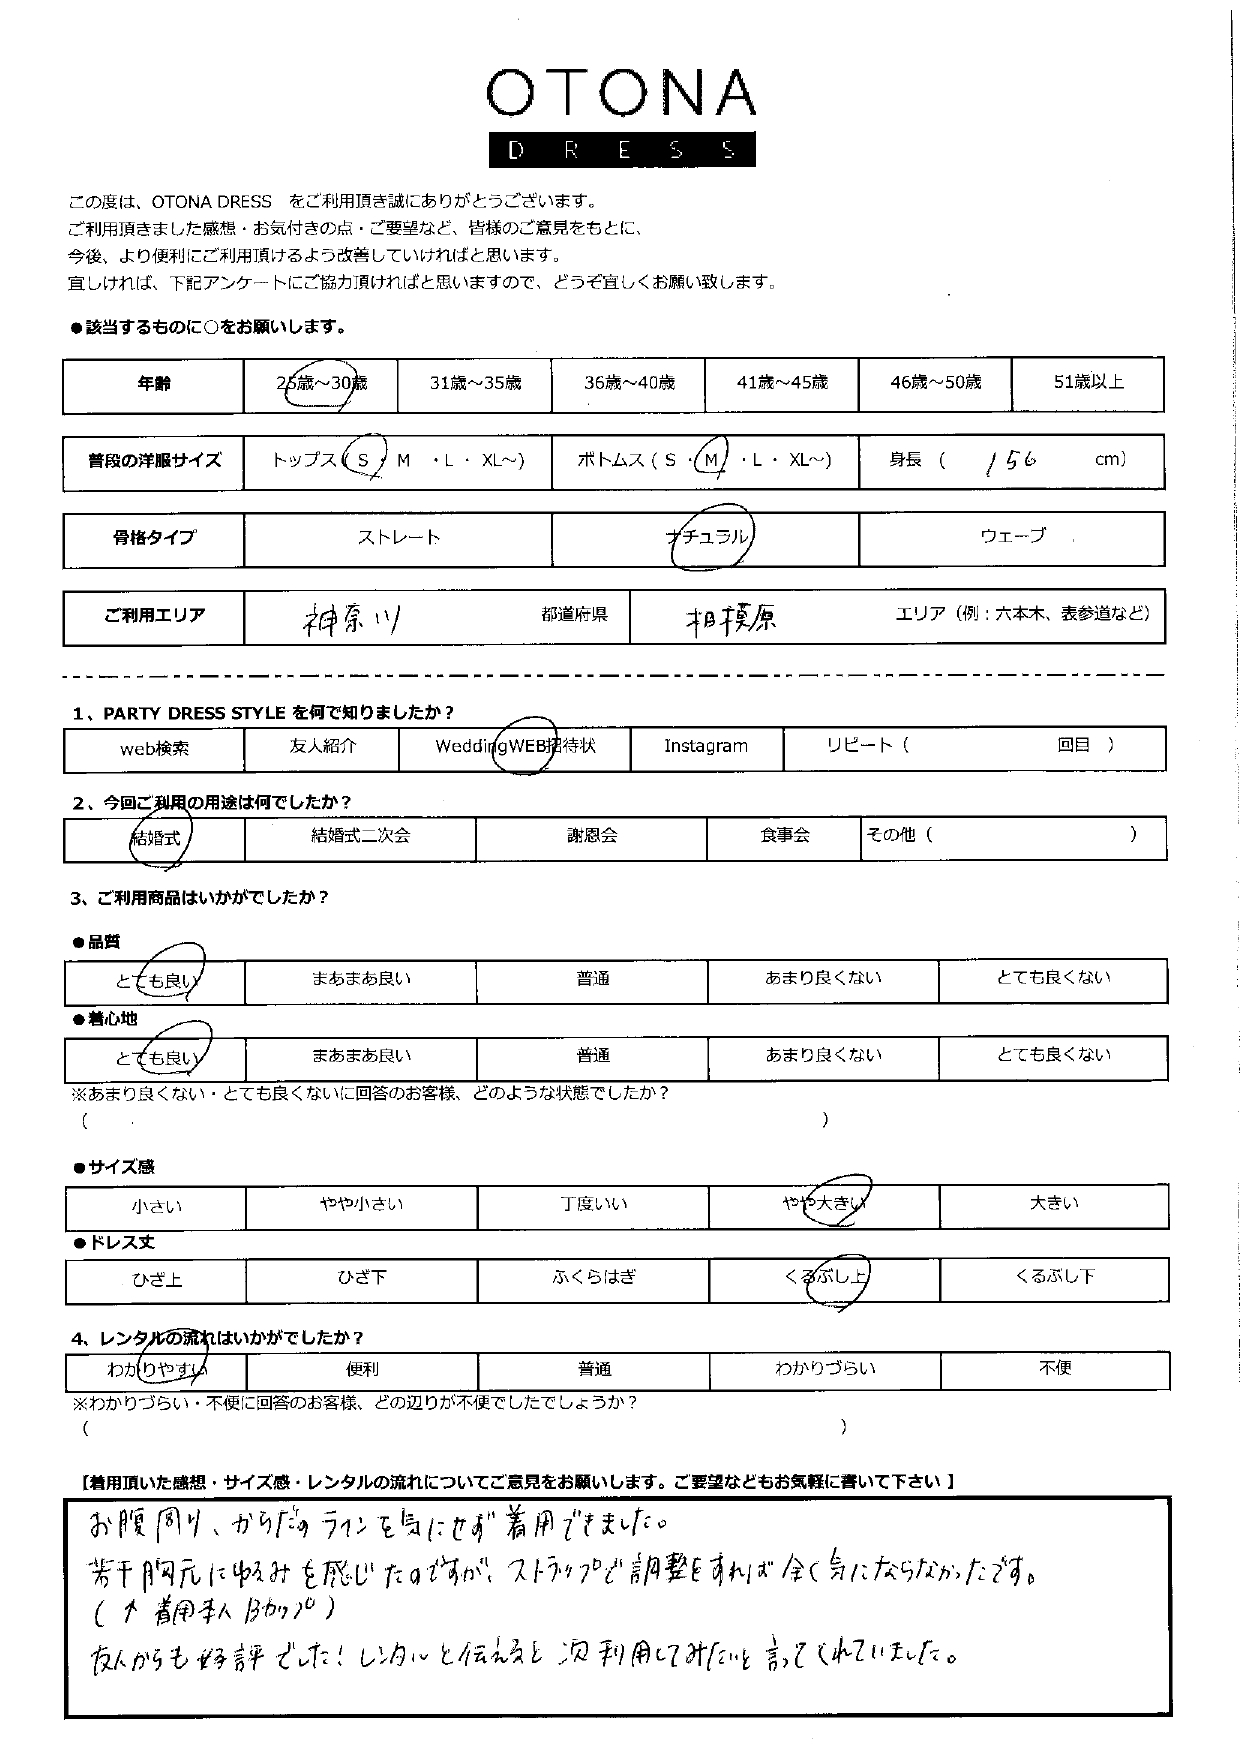 OTONA
DRESS
この度は、OTONA DRESS をご利用頂き誠にありがとうございます。
ご利用頂きました感想・お気付きの点・ご要望など、皆様のご意見をもとに、
今後、より便利にご利用頂けるよう改善していければと思います。
宜しければ、下記アンケートにご協力頂ければと思いますので、どうぞ宜しくお願い致します。
●該当するものに○をお願いします。
年齢 25歳～30歳 31歳～35歳 36歳～40歳 41歳～45歳 46歳～50歳 51歳以上
普段の洋服サイズ トップス ( S ・ M ・L ・ XL～) ボトムス ( S ・ M ・L ・ XL～) 身長 ( 156 cm)
骨格タイプ ストレート ナチュラル ウェーブ
ご利用エリア 神奈川 都道府県 相模原 エリア（例：六本木、表参道など）
1、PARTY DRESS STYLE を何で知りましたか？
web検索 友人紹介 WeddingWEB招待状 Instagram リピート（ 回目 ）
2、今回ご利用の用途は何でしたか？
結婚式 結婚式二次会 謝恩会 食事会 その他（ ）
3、ご利用商品はいかがでしたか？
●品質
とても良い まあまあ良い 普通 あまり良くない とても良くない
●着心地
とても良い まあまあ良い 普通 あまり良くない とても良くない
※あまり良くない・とても良くないに回答のお客様、どのような状態でしたか？
（ ）
●サイズ感
小さい やや小さい 丁度いい やや大きい 大きい
●ドレス丈
ひざ上 ひざ下 ふくらはぎ くるぶし上 くるぶし下
4、レンタルの流れはいかがでしたか？
わかりやすい 便利 普通 わかりづらい 不便
※わかりづらい・不便に回答のお客様、どの辺りが不便でしたでしょうか？
（ ）
【着用頂いた感想・サイズ感・レンタルの流れについてご意見をお願いします。ご要望などもお気軽に書いて下さい 】
お腹周り、からだのラインを気にせず着用できました。
若干胸元にゆるみを感じたのですが、ストラップで調整をすれば全く気にならなかったです。
(↑ 着用本人Bカップ)
友人からも好評でした！レンタルと伝えると次利用してみたいと言ってくれていました。